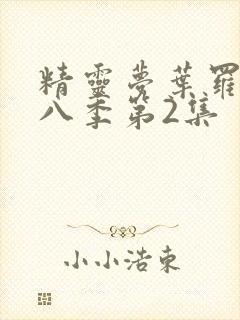 精靈夢葉羅
八季第2集
小小浩東